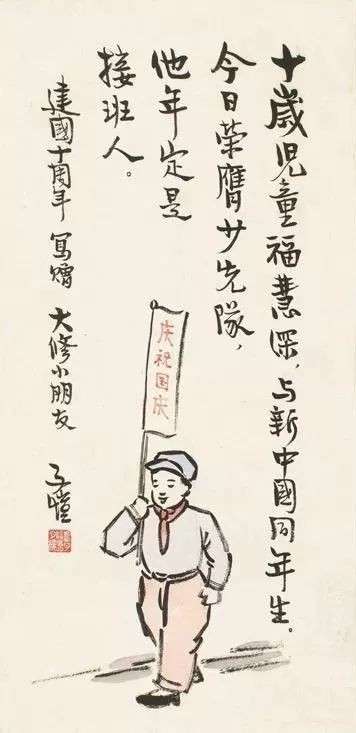 十歲児童福慧深，与新中國同年生。
今日荣膺少先隊，
他年定是
接班人。
建國十周年 寫贈 大修小朋友 子愷
庆祝国庆